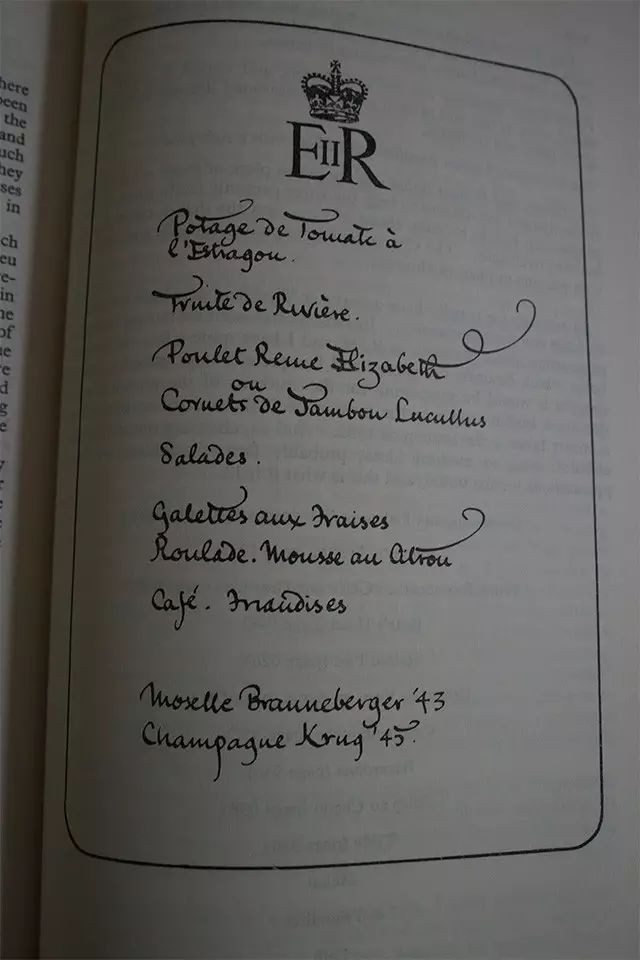 here
een
the
and
uch
hey
ses
in
ch
eu
re-
in
of
E II R
Potage de Tomate à
l'Estragon.
Truite de Rivière.
Poulet Reine Elizabeth
ou
Cornets de Jambon Lucullus
Salades.
Galettes aux Fraises
Roulade. Mousse au Citron
Café. Friandises
Moselle Brauneberger '43
Champagne Krug '45.